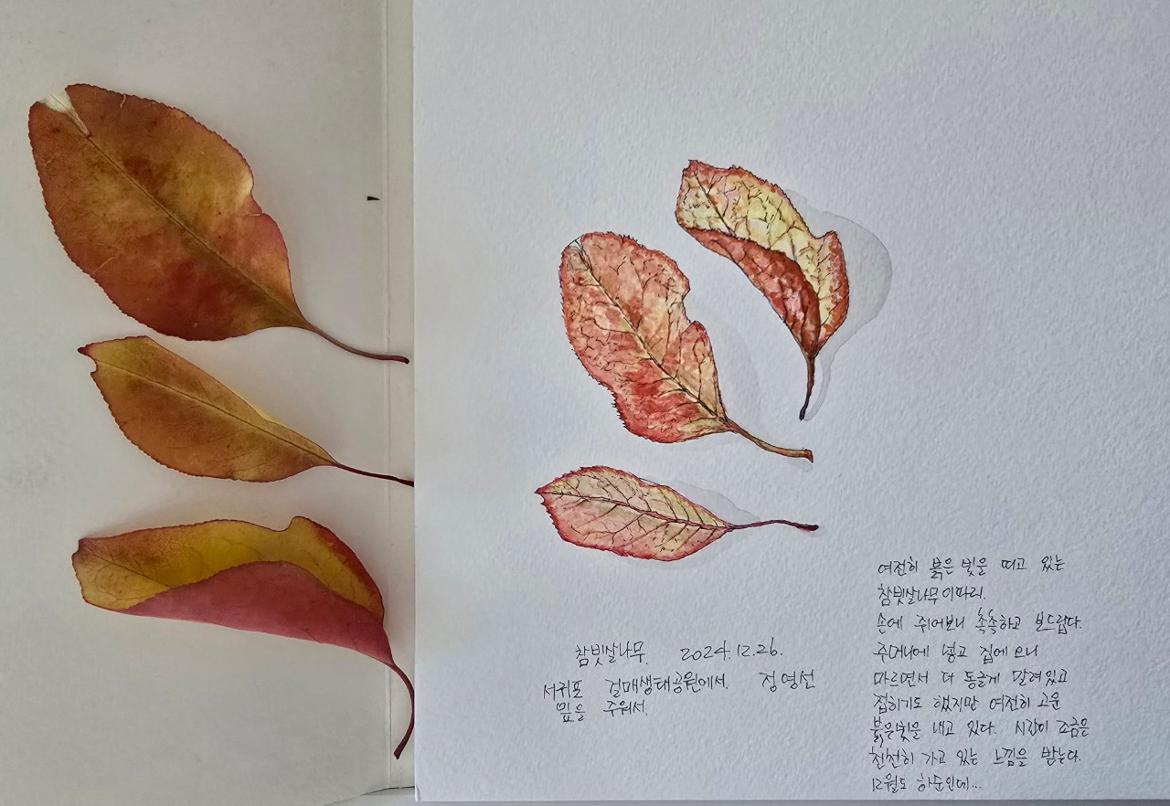 참빗살나무. 2024. 12. 26.
서귀포 걸매생태공원에서. 정영선
잎을 주워서.
여전히 붉은 빛을 띠고 있는
참빗살나무 이파리.
손에 쥐어보니 촉촉하고 보드랍다.
주머니에 넣고 집에 오니
마르면서 더 동글게 말려있고
접히기도 했지만 여전히 고운
붉은빛을 내고 있다. 시간이 조금은
천천히 가고 있는 느낌을 받는다.
12월도 하순인데...